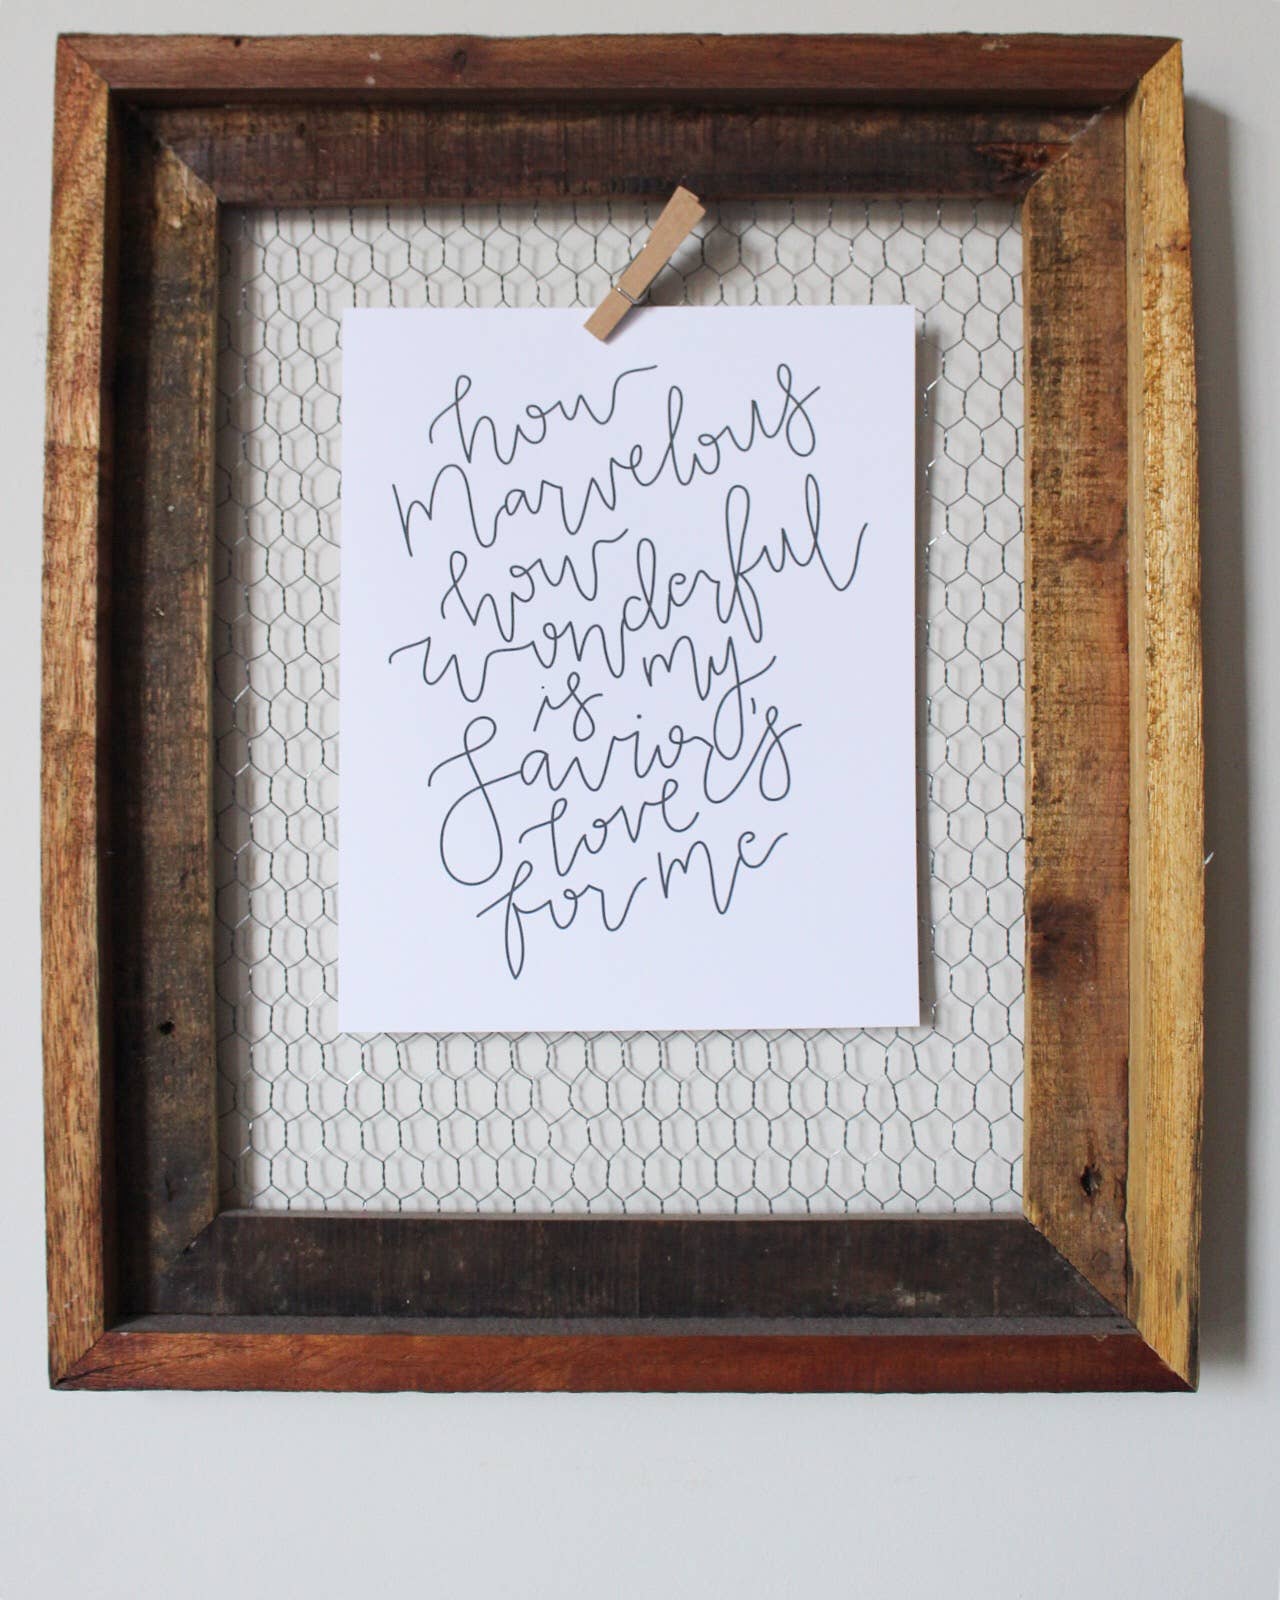 how
Marvelous
how
wonderful
is my
Savior's
love
for me